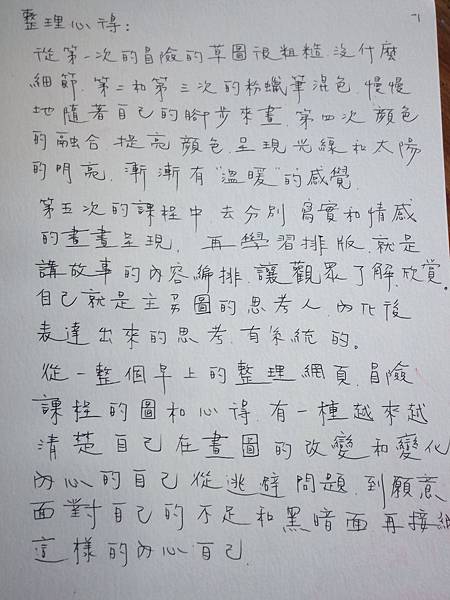 整理心得:
從第一次的冒險的草圖很粗糙沒什麼
細節.第二和第三次的粉蠟筆混色.慢慢
地隨著自己的腳步來畫.第四次顏色
的融合.提亮顏色.呈現光線和太陽
的明亮.漸漸有"溫暖"的感覺.
第五次的課程中.去分別寫實和情感
的畫畫呈現.再學習排版.就是
講故事的內容編排.讓觀眾了解.欣賞.
自己就是主圖的思考人.內化後
表達出來的思考.有系統的。
從一整個早上的整理網頁.冒險
課程的圖和心得.有一種越來越
清楚自己在畫圖的改變和變化
內心的自己從逃避問題.到願意
面對自己的不足和黑暗面.再接納
這樣的內心自己.